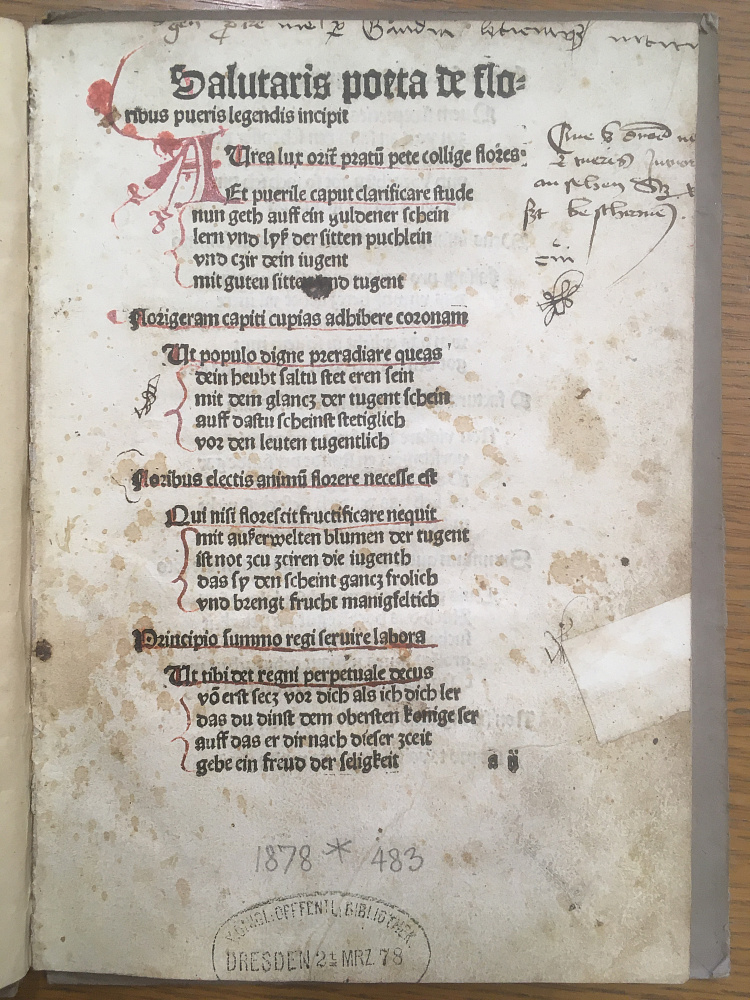 Salutaris poeta de flo-
ribus pueris legendis incipit
AUrea lux orit̃ pratũ pete collige flores:
Et puerile caput clarificare stude
nun geth auff ein guldener schein
lern vnd lyß der sitten puchlein
vnd czir dein iugent
mit guten sitten vnd tugent
Florigeram capiti cupias adhibere coronam
Ut populo digne preradiare queas
dein heubt saltu stet eren sein
mit dem glancz der tugent schein
auff dastu scheinst stetiglich
vor den leuten tugentlich
Floribus electis animũ florere necesse est
Qui nisi florescit fructificare nequit
mit außerwelten blumen der tugent
ist not zcu zciren die iugenth
das sy den scheint gancz frolich
vnd brengt frucht manigfeltich
Principio summo regi seruire labora
Ut tibi det regni perpetuale decus
võ erst secz vor dich als ich dich ler
das du dinst dem obersten konige ser
auff das er dir nach dieser zceit
gebe ein freud der seligkeit
a ij
1878 * 483
KÖNIGL. OEFFENTL. BIBLIOTHEK.
DRESDEN 21 MRZ. 78